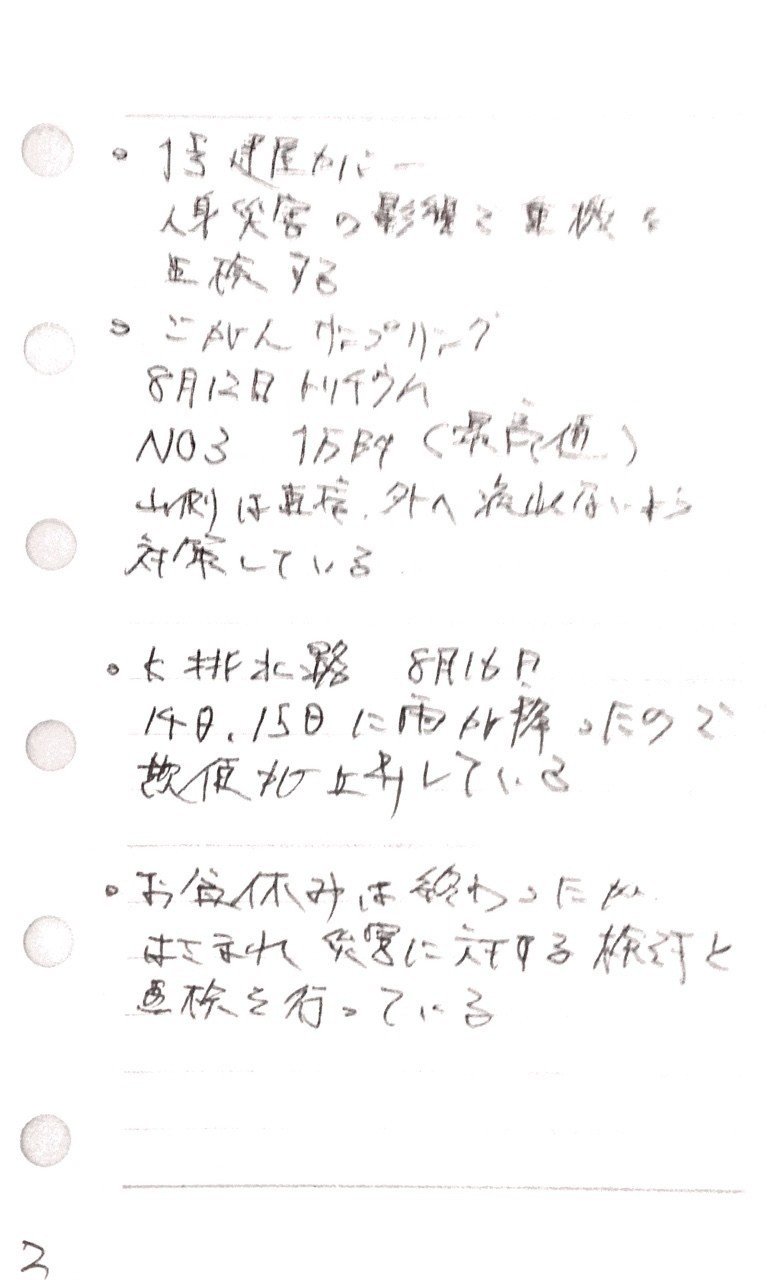 ・1号建屋カバー
人身災害の影響で重機を
点検する
・ごがんサンプリング
8月12日 トリチウム
NO3 1万Bq(最高値)
山側は直接、外へ流出ないよう
対策している
・K排水路 8月16日
14日、15日に雨が降ったので
数値が上昇している
・お盆休みは終わったが
はさまれ災害に対する検討と
点検を行っている
2